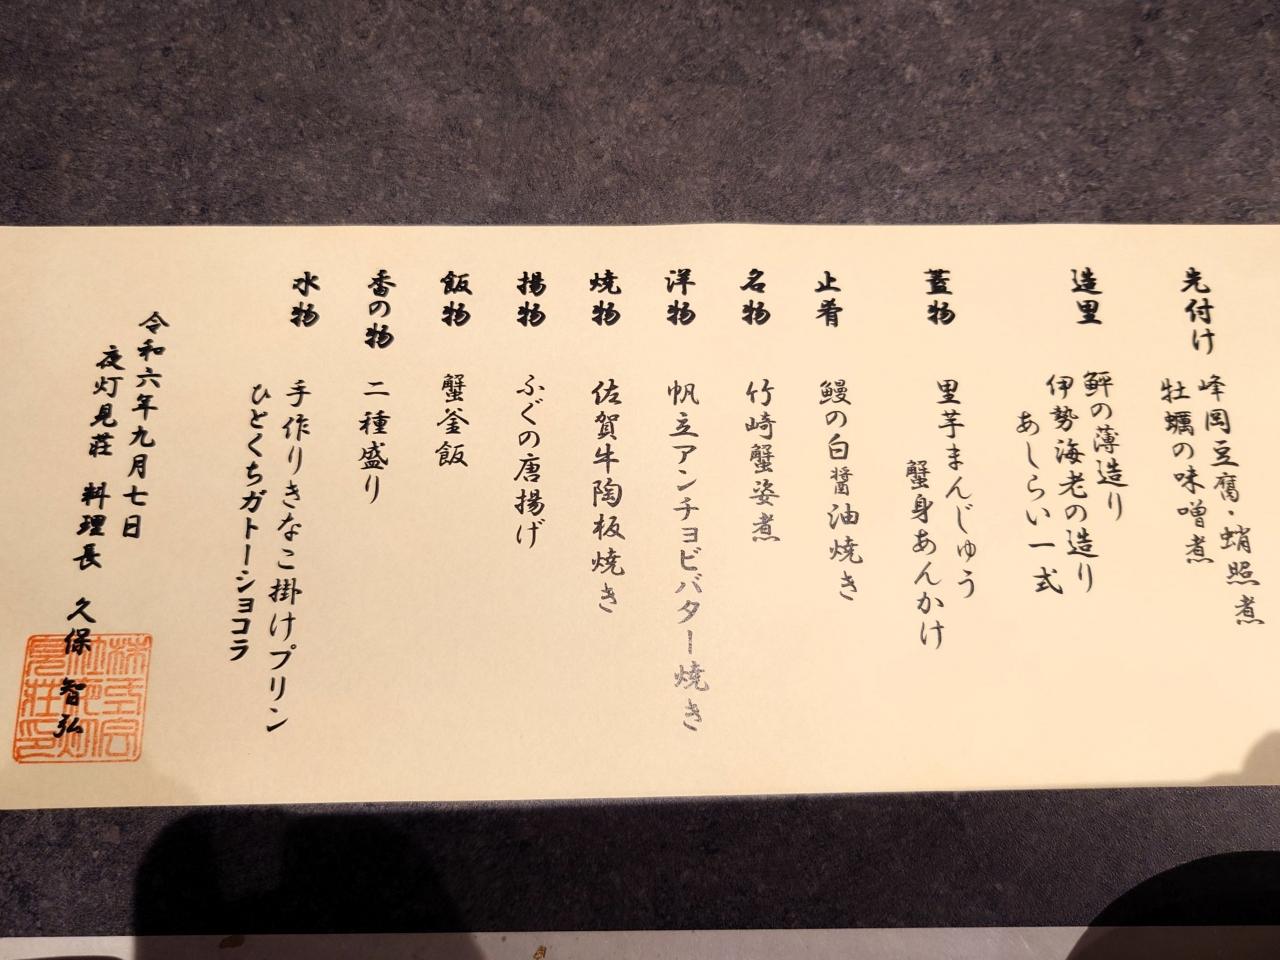 先付け　峰岡豆腐・蛸照煮
牡蠣の味噌煮
造里　鮃の薄造り
伊勢海老の造り
あしらい一式
蓋物　里芋まんじゅう
蟹身あんかけ
止肴　鰻の白醤油焼き
名物　竹崎蟹姿煮
洋物　帆立アンチョビバター焼き
焼物　佐賀牛陶板焼き
揚物　ふぐの唐揚げ
飯物　蟹釜飯
香の物　二種盛り
水物　手作りきなこ掛けプリン
ひとくちガトーショコラ
令和六年九月七日
夜灯見荘　料理長　久保　智弘
株式会
社夜灯
見荘印